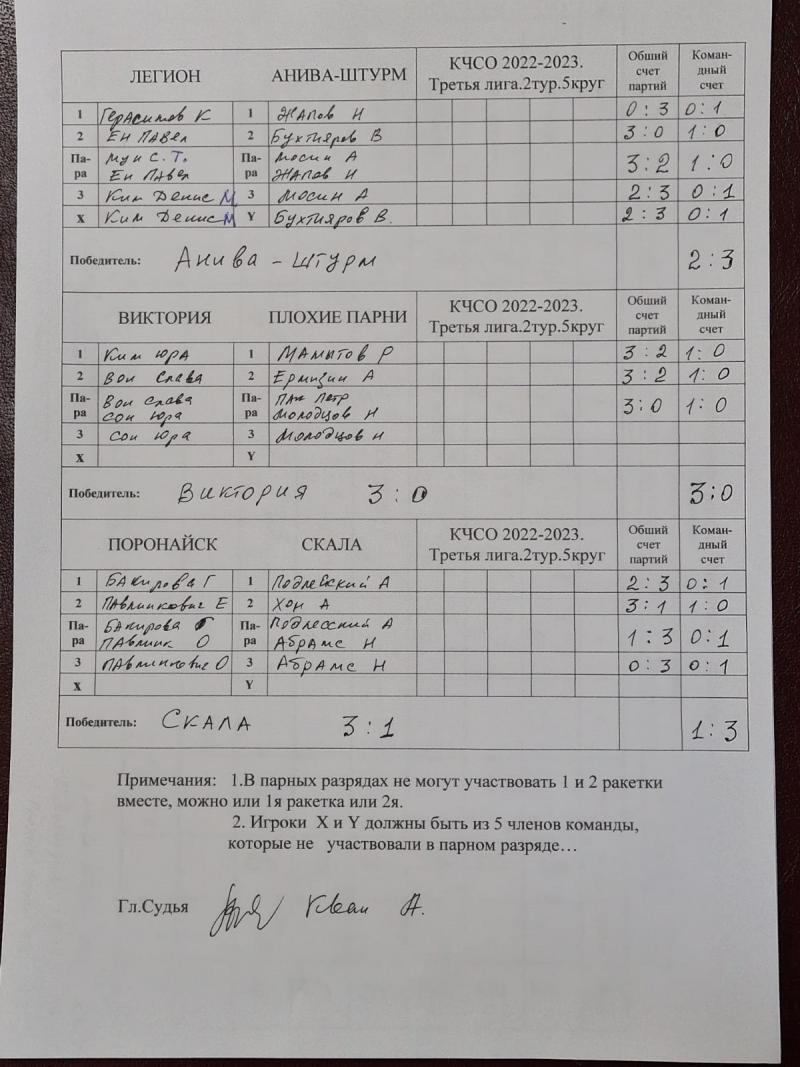 ЛЕГИОН АНИВА-ШТУРМ КЧСО 2022-2023. Третья лига.2тур.5круг Общий счет партий Коман-дный счет
1 Герасимов К 1 Жапов Н 0 : 3 0 : 1
2 Ен Павел 2 Бухтияров В 3 : 0 1 : 0
Па-ра Мун С.Т. Па-ра Мосин А 3 : 2 1 : 0
Ен Павел Жапов Н
3 Ким Денис М 3 Мосин А 2 : 3 0 : 1
X Ким Денис М Y Бухтияров В. 2 : 3 0 : 1
Победитель: Анива - Штурм 2 : 3
ВИКТОРИЯ ПЛОХИЕ ПАРНИ КЧСО 2022-2023. Третья лига.2тур.5круг Общий счет партий Коман-дный счет
1 Ким Юра 1 Мамытов Р 3 : 2 1 : 0
2 Вон Слава 2 Ермизин А 3 : 2 1 : 0
Па-ра Вон Слава Па-ра Пак Петр 3 : 0 1 : 0
Сон Юра Молодцов Н
3 Сон Юра 3 Молодцов Н
X Y
Победитель: Виктория 3 : 0 3 : 0
ПОРОНАЙСК СКАЛА КЧСО 2022-2023. Третья лига.2тур.5круг Общий счет партий Коман-дный счет
1 Бакирова Г 1 Подлесский А 2 : 3 0 : 1
2 Павлинкович Е 2 Хон А 3 : 1 1 : 0
Па-ра Бакирова Г Па-ра Подлесский А 1 : 3 0 : 1
Павлинк О Абрамс Н
3 Павлинкович О 3 Абрамс Н 0 : 3 0 : 1
X Y
Победитель: Скала 3 : 1 1 : 3
Примечания: 1.В парных разрядах не могут участвовать 1 и 2 ракетки
вместе, можно или 1я ракетка или 2я.
2. Игроки X и Y должны быть из 5 членов команды,
которые не участвовали в парном разряде…
Гл.Судья Кван А.